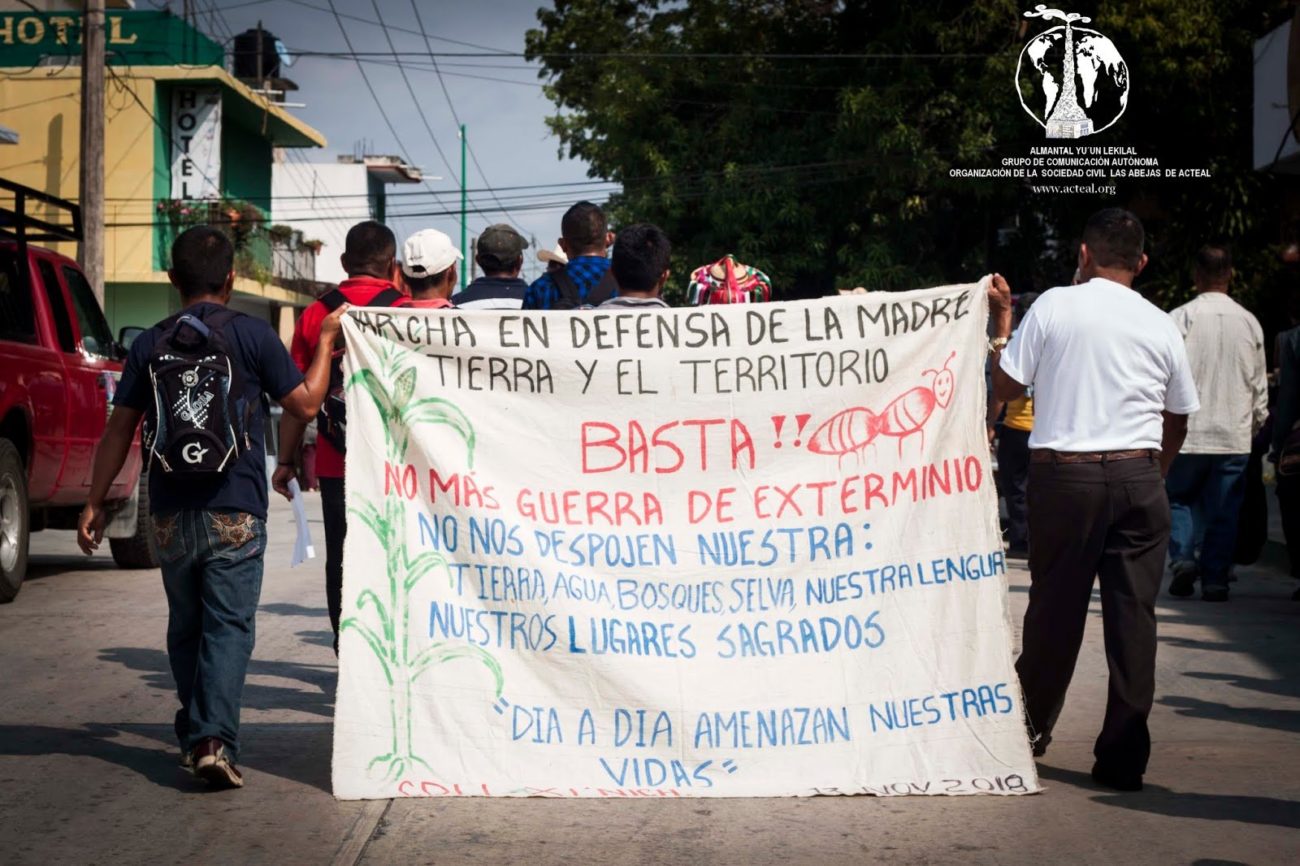 HOTEL
HOTEL
ALMANTAL YU´UN LEKILAL
GRUPO DE COMUNICACIÓN AUTÓNOMA
ORGANIZACIÓN DE LA SOCIEDAD CIVIL LAS ABEJAS DE ACTEAL
www.acteal.org
MARCHA EN DEFENSA DE LA MADRE
TIERRA Y EL TERRITORIO
BASTA !!
NO MÁS GUERRA DE EXTERMINIO
NO NOS DESPOJEN NUESTRA:
TIERRA, AGUA, BOSQUES, SELVA, NUESTRA LENGUA
NUESTROS LUGARES SAGRADOS
"DIA A DIA AMENAZAN NUESTRAS
VIDAS"
13 NOV 2018
G